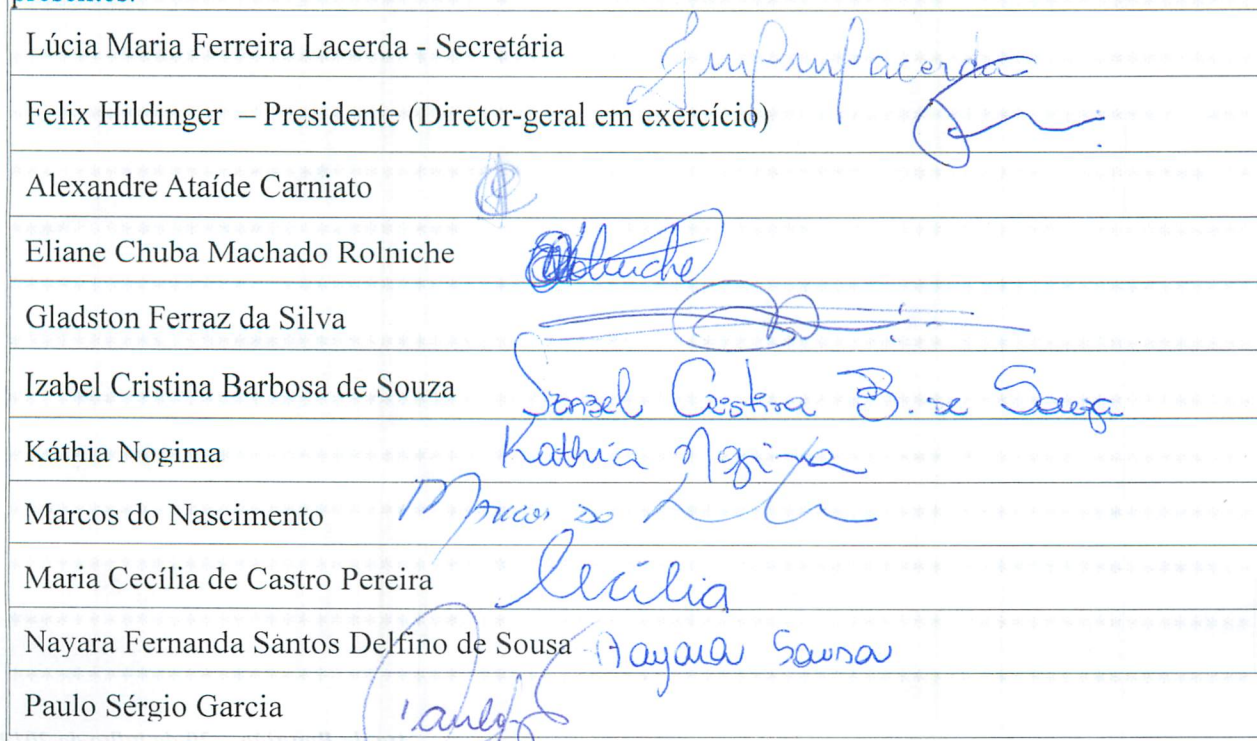 presentes:
Lúcia Maria Ferreira Lacerda - Secretária Lacerda
Felix Hildinger – Presidente (Diretor-geral em exercício)
Alexandre Ataíde Carniato
Eliane Chuba Machado Rolniche Rolniche
Gladston Ferraz da Silva
Izabel Cristina Barbosa de Souza Izabel Cristina B. de Souza
Káthia Nogima Kathia Nogima
Marcos do Nascimento Marcos do
Maria Cecília de Castro Pereira Cecília
Nayara Fernanda Santos Delfino de Sousa Nayara Sousa
Paulo Sérgio Garcia Paulo